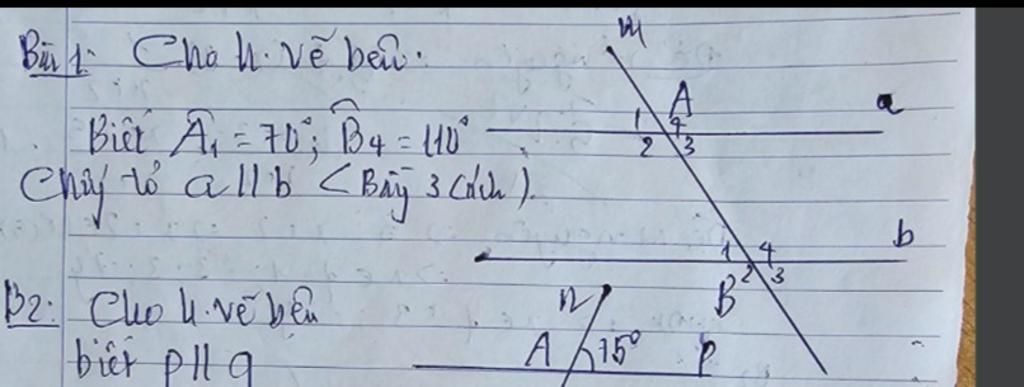 m
Bài 1: Cho h. vẽ bên.
A a
1 4
Biết Â₁ = 70°; B̂₄ = 110°
2 3
Chứng tỏ a // b (Bằng 3 cách).
b
1 4
2 3
B
B2: Cho h. vẽ bên
n
biết p // q
A 75° p